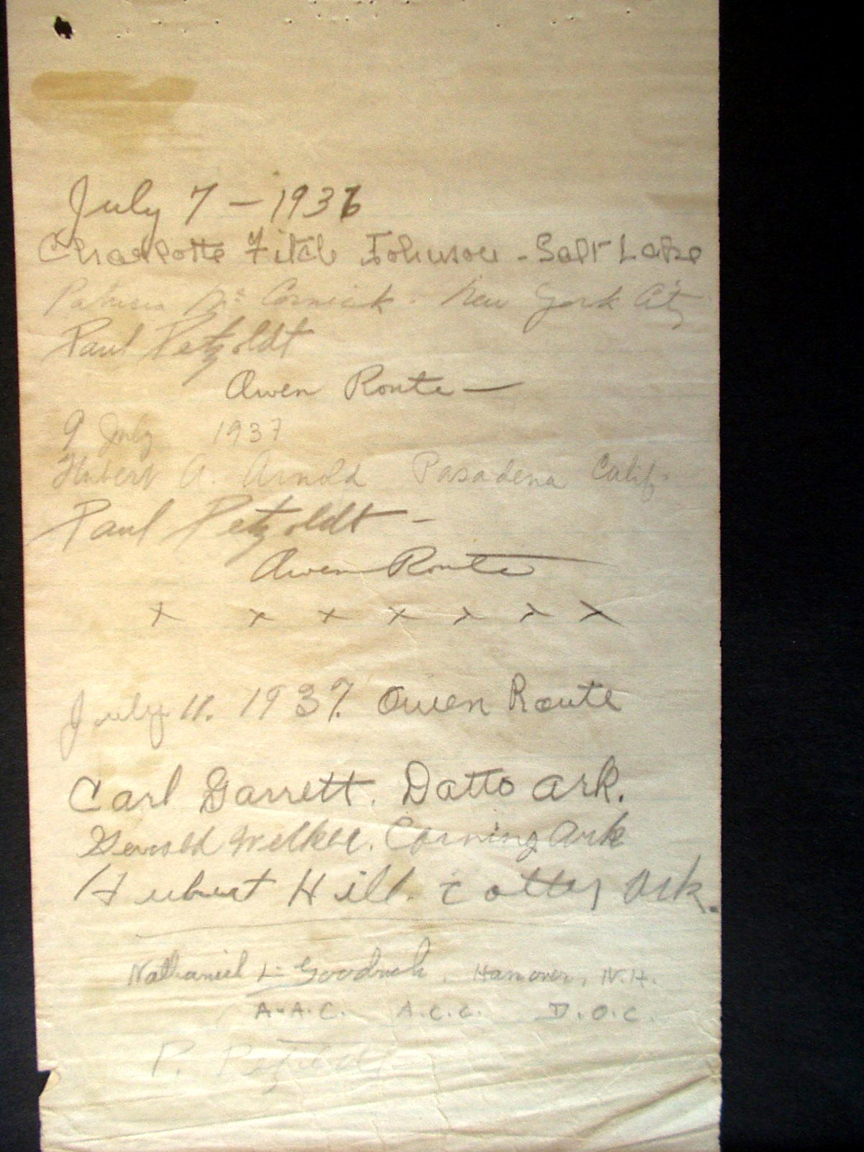 July 7 - 1936
Charlotte Fitch Johnson - Salt Lake
Patricia McCormick - New York City
Paul Petzoldt
Owen Route -
9 July 1937
Hubert A. Arnold Pasadena Calif.
Paul Petzoldt -
Owen Route
x x x x x x x
July 11. 1937. Owen Route
Carl Garrett. Datto Ark.
Welker. Corning Ark
Hubert Hill. Cotter Ark.
Nathaniel L. Goodrich, Hanover, N.H.
A.A.C. A.C.C. D.O.C.
P. Petzoldt